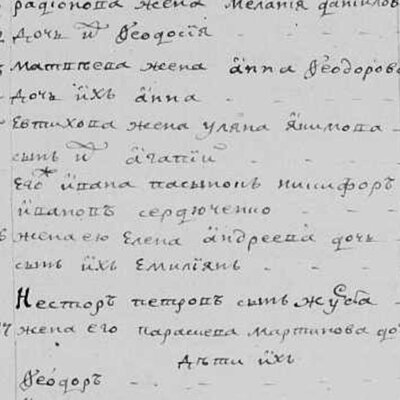 радіонова жена мелания данилов
дочь ѿ Ѳеодосія
матвѣева жена а҆нна Ѳеодоров
дочь и҆хъ а҆нна
Евтихова жена уляна я҆кимова
сынъ ѿ а҆гапіи
Его и҆вана пасынокъ никифоръ
и҆вановъ сердюченко
жена его Елена а҆ндреева дочь
сынъ и҆хъ Емиліянъ
Несторъ петровъ сынъ
жена его параскева мартинова до
дѣти и҆хъ
Ѳеодоръ